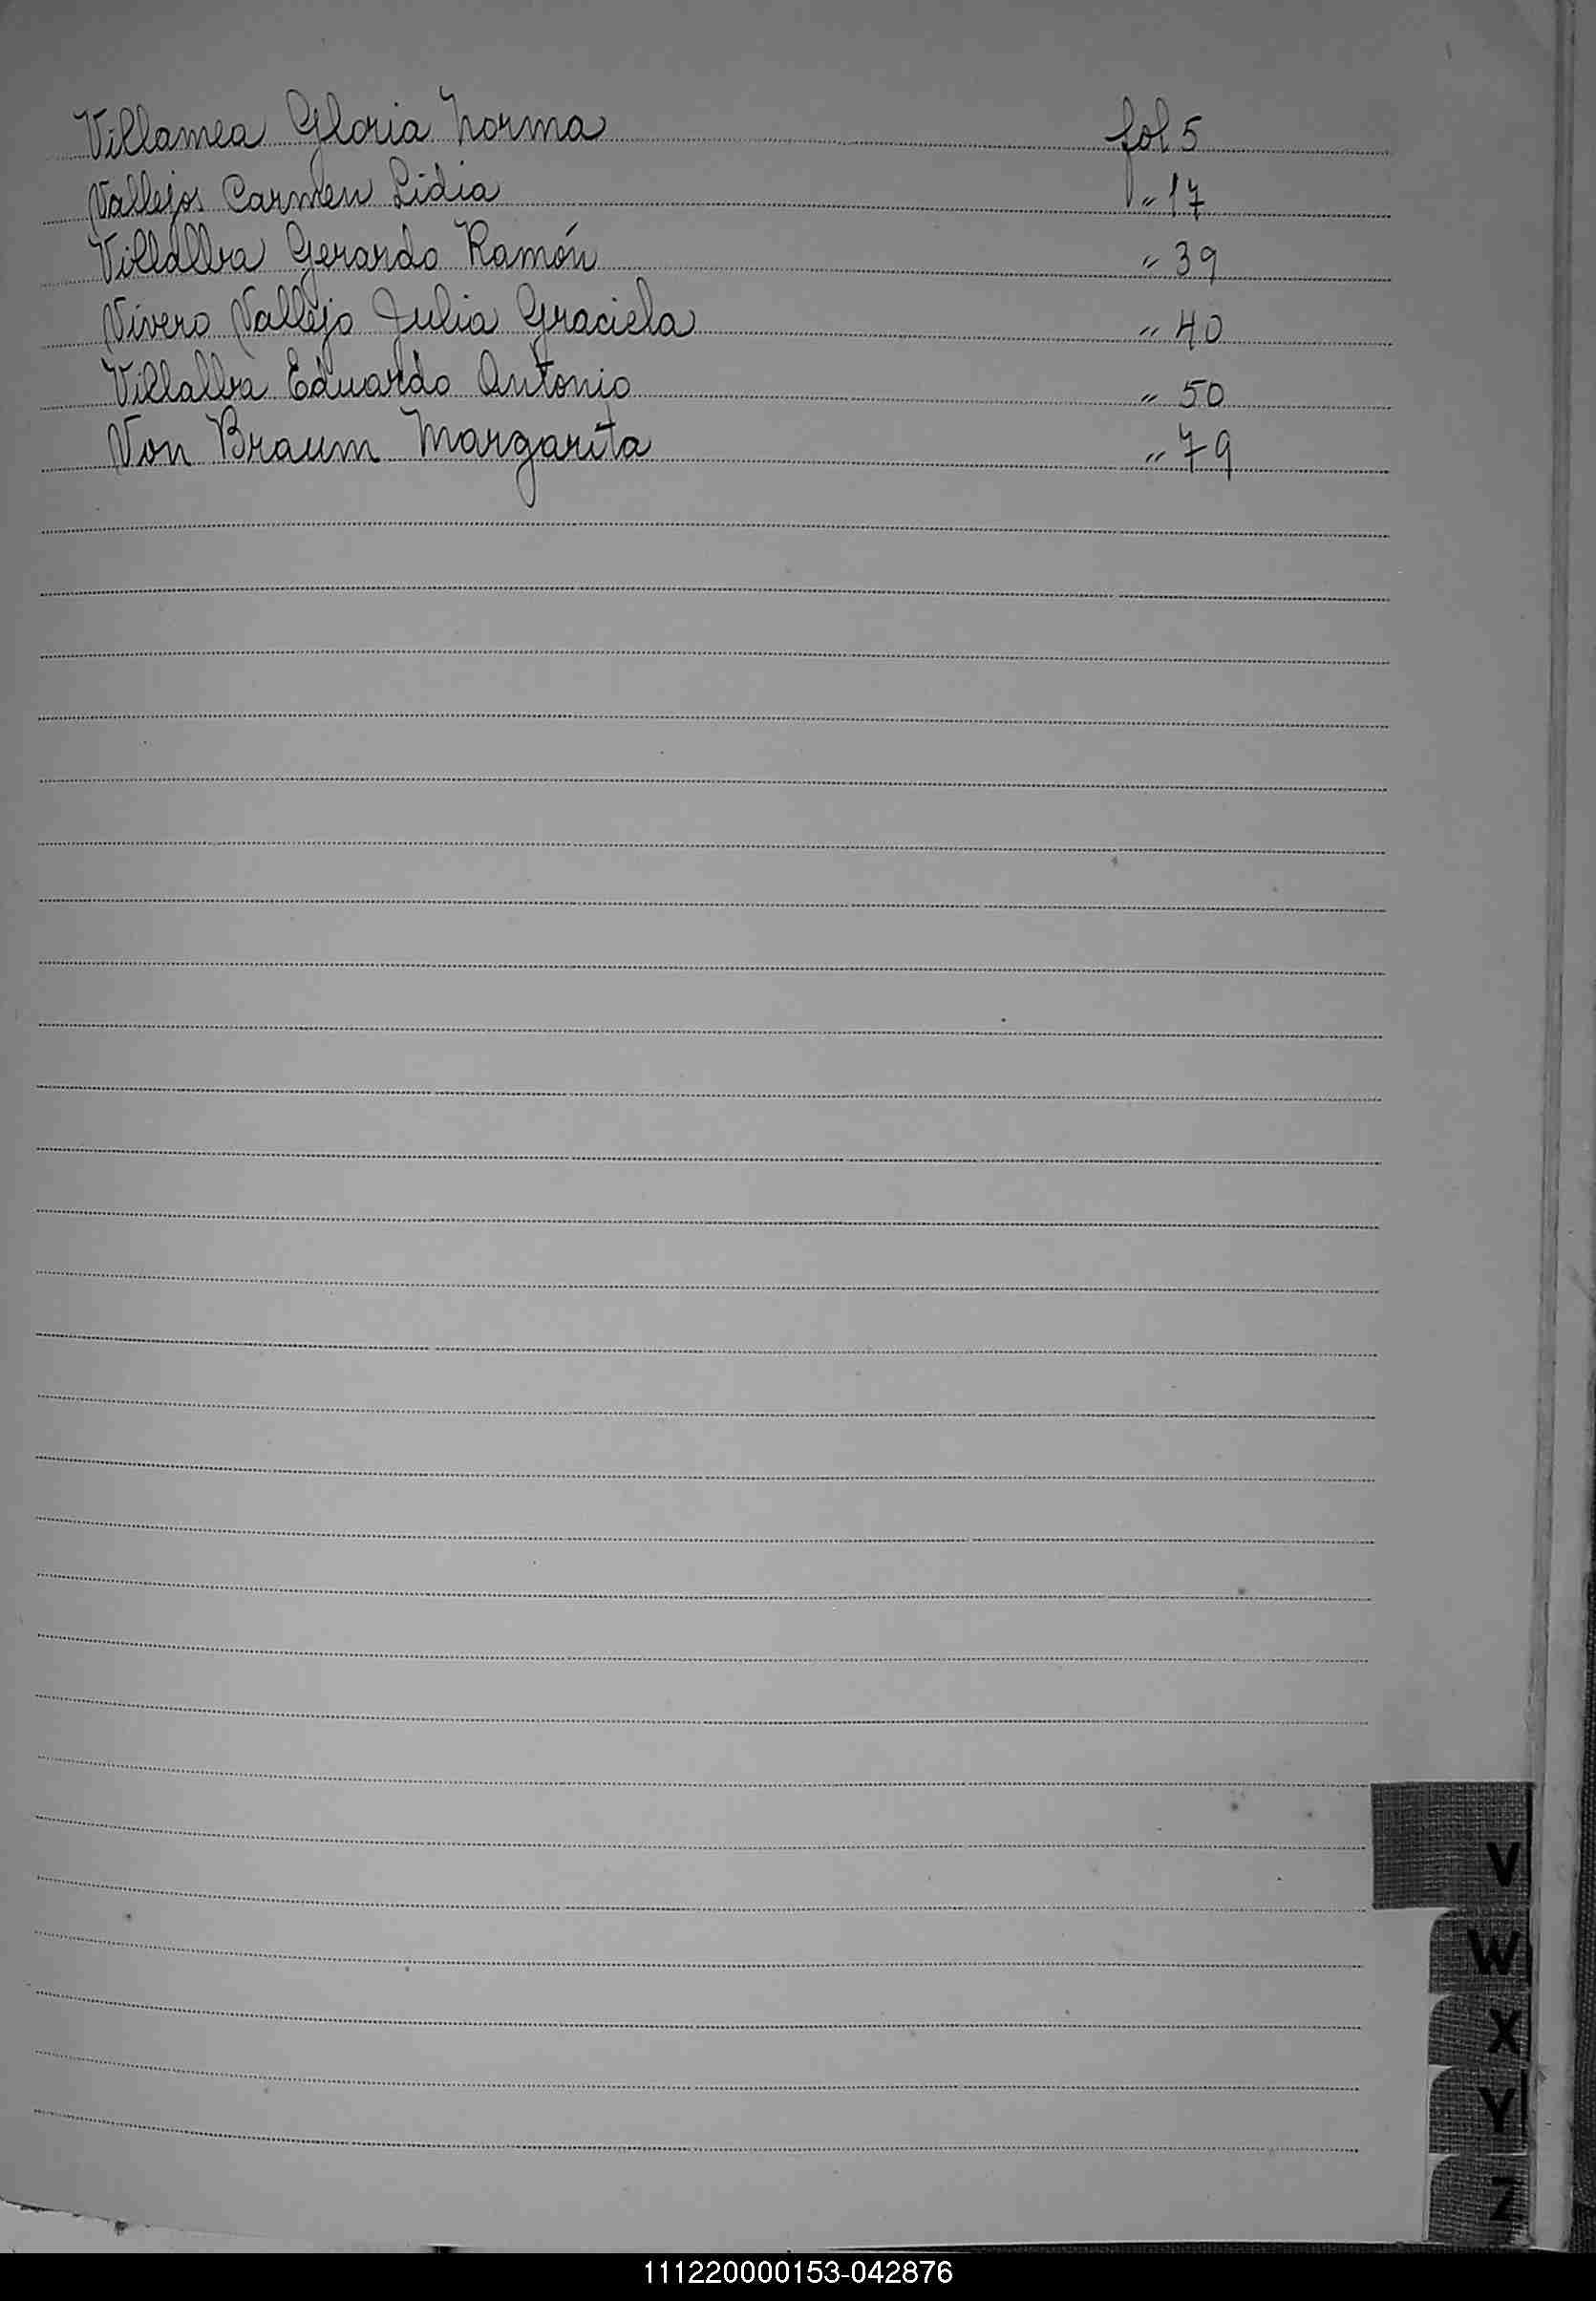 Villamea Gloria Norma fol 5
Vallejos Carmen Lidia " 17
Villalba Gerardo Ramón " 39
Vivero Vallejo Julia Graciela " 40
Villalba Eduardo Antonio " 50
Von Braum Margarita " 79
V
W
X
Y
Z
111220000153-042876